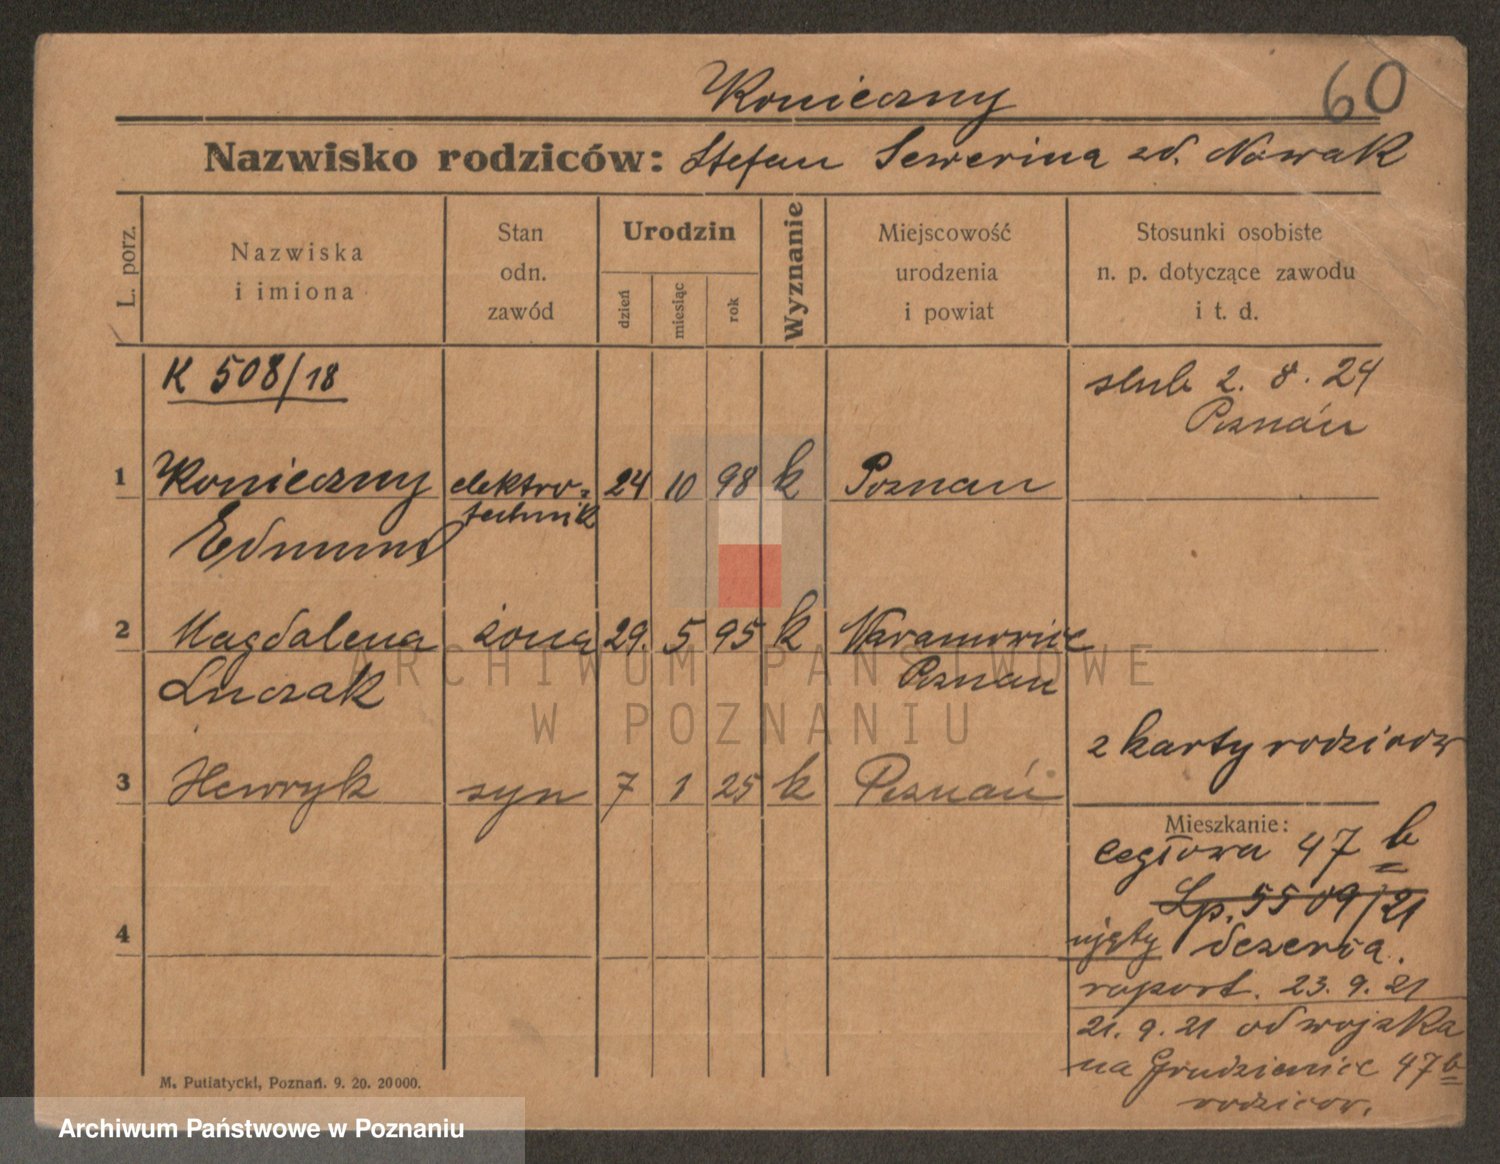 Konieczny
60
Nazwisko rodziców: Stefan Sewerina zd. Nowak
L. porz.
Nazwiska
i imiona
Stan
odn.
zawód
Urodzin
dzień
miesiąc
rok
Wyznanie
Miejscowość
urodzenia
i powiat
Stosunki osobiste
n. p. dotyczące zawodu
i t. d.
K 508/18
slub 2. 8. 24
Poznań
1 Konieczny elektro- 24 10 98 k Poznan
technik
Edmund
2 Magdalena żona 29. 5 95 k Naramowice
Luczak Poznan
z karty rodzicow
3 Henryk syn 7 1 25 k Poznań
Mieszkanie:
Cegłowa 47 b
Lp. 5509/21
4
ujęty dezerca.
raport. 23. 9. 21
21. 9. 21 od wojska
na Grudzieniec 47 b
rodzicow.
M. Putiatycki, Poznań. 9. 20. 20000.
ARCHIWUM PAŃSTWOWE
W POZNANIU
Archiwum Państwowe w Poznaniu